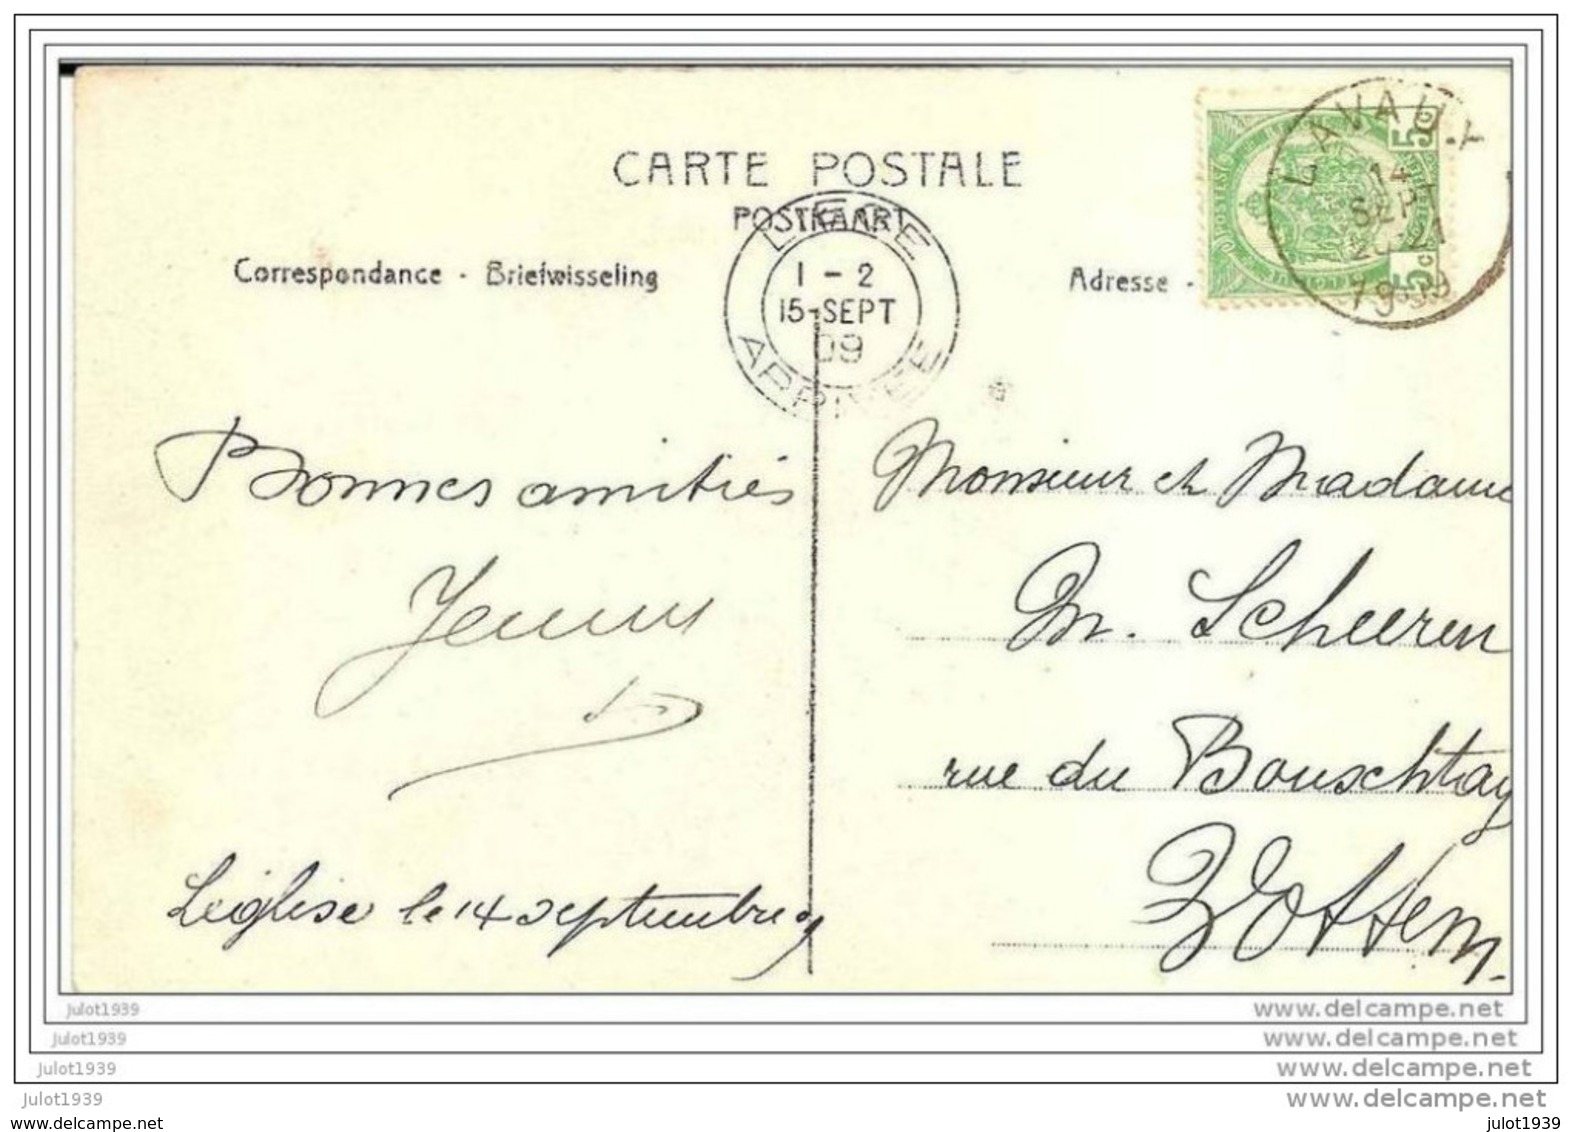 CARTE POSTALE
POSTKAART
Correspondance - Briefwisseling
Adresse -
LIÈGE
1 - 2
15-SEPT
09
ARRIVÉE
LAVAUX
14
SEPT
20-21
5c
5c
Bonnes amitiés
Monsieur et Madame
M. Scheeren
rue du Bouxchtay
Vottem
Léglise le 14 septembre 9
Julot1939
www.delcampe.net
Julot1939
www.delcampe.net
Julot1939
www.delcampe.net
Julot1939
www.delcampe.net
www.delcampe.net
julot1939